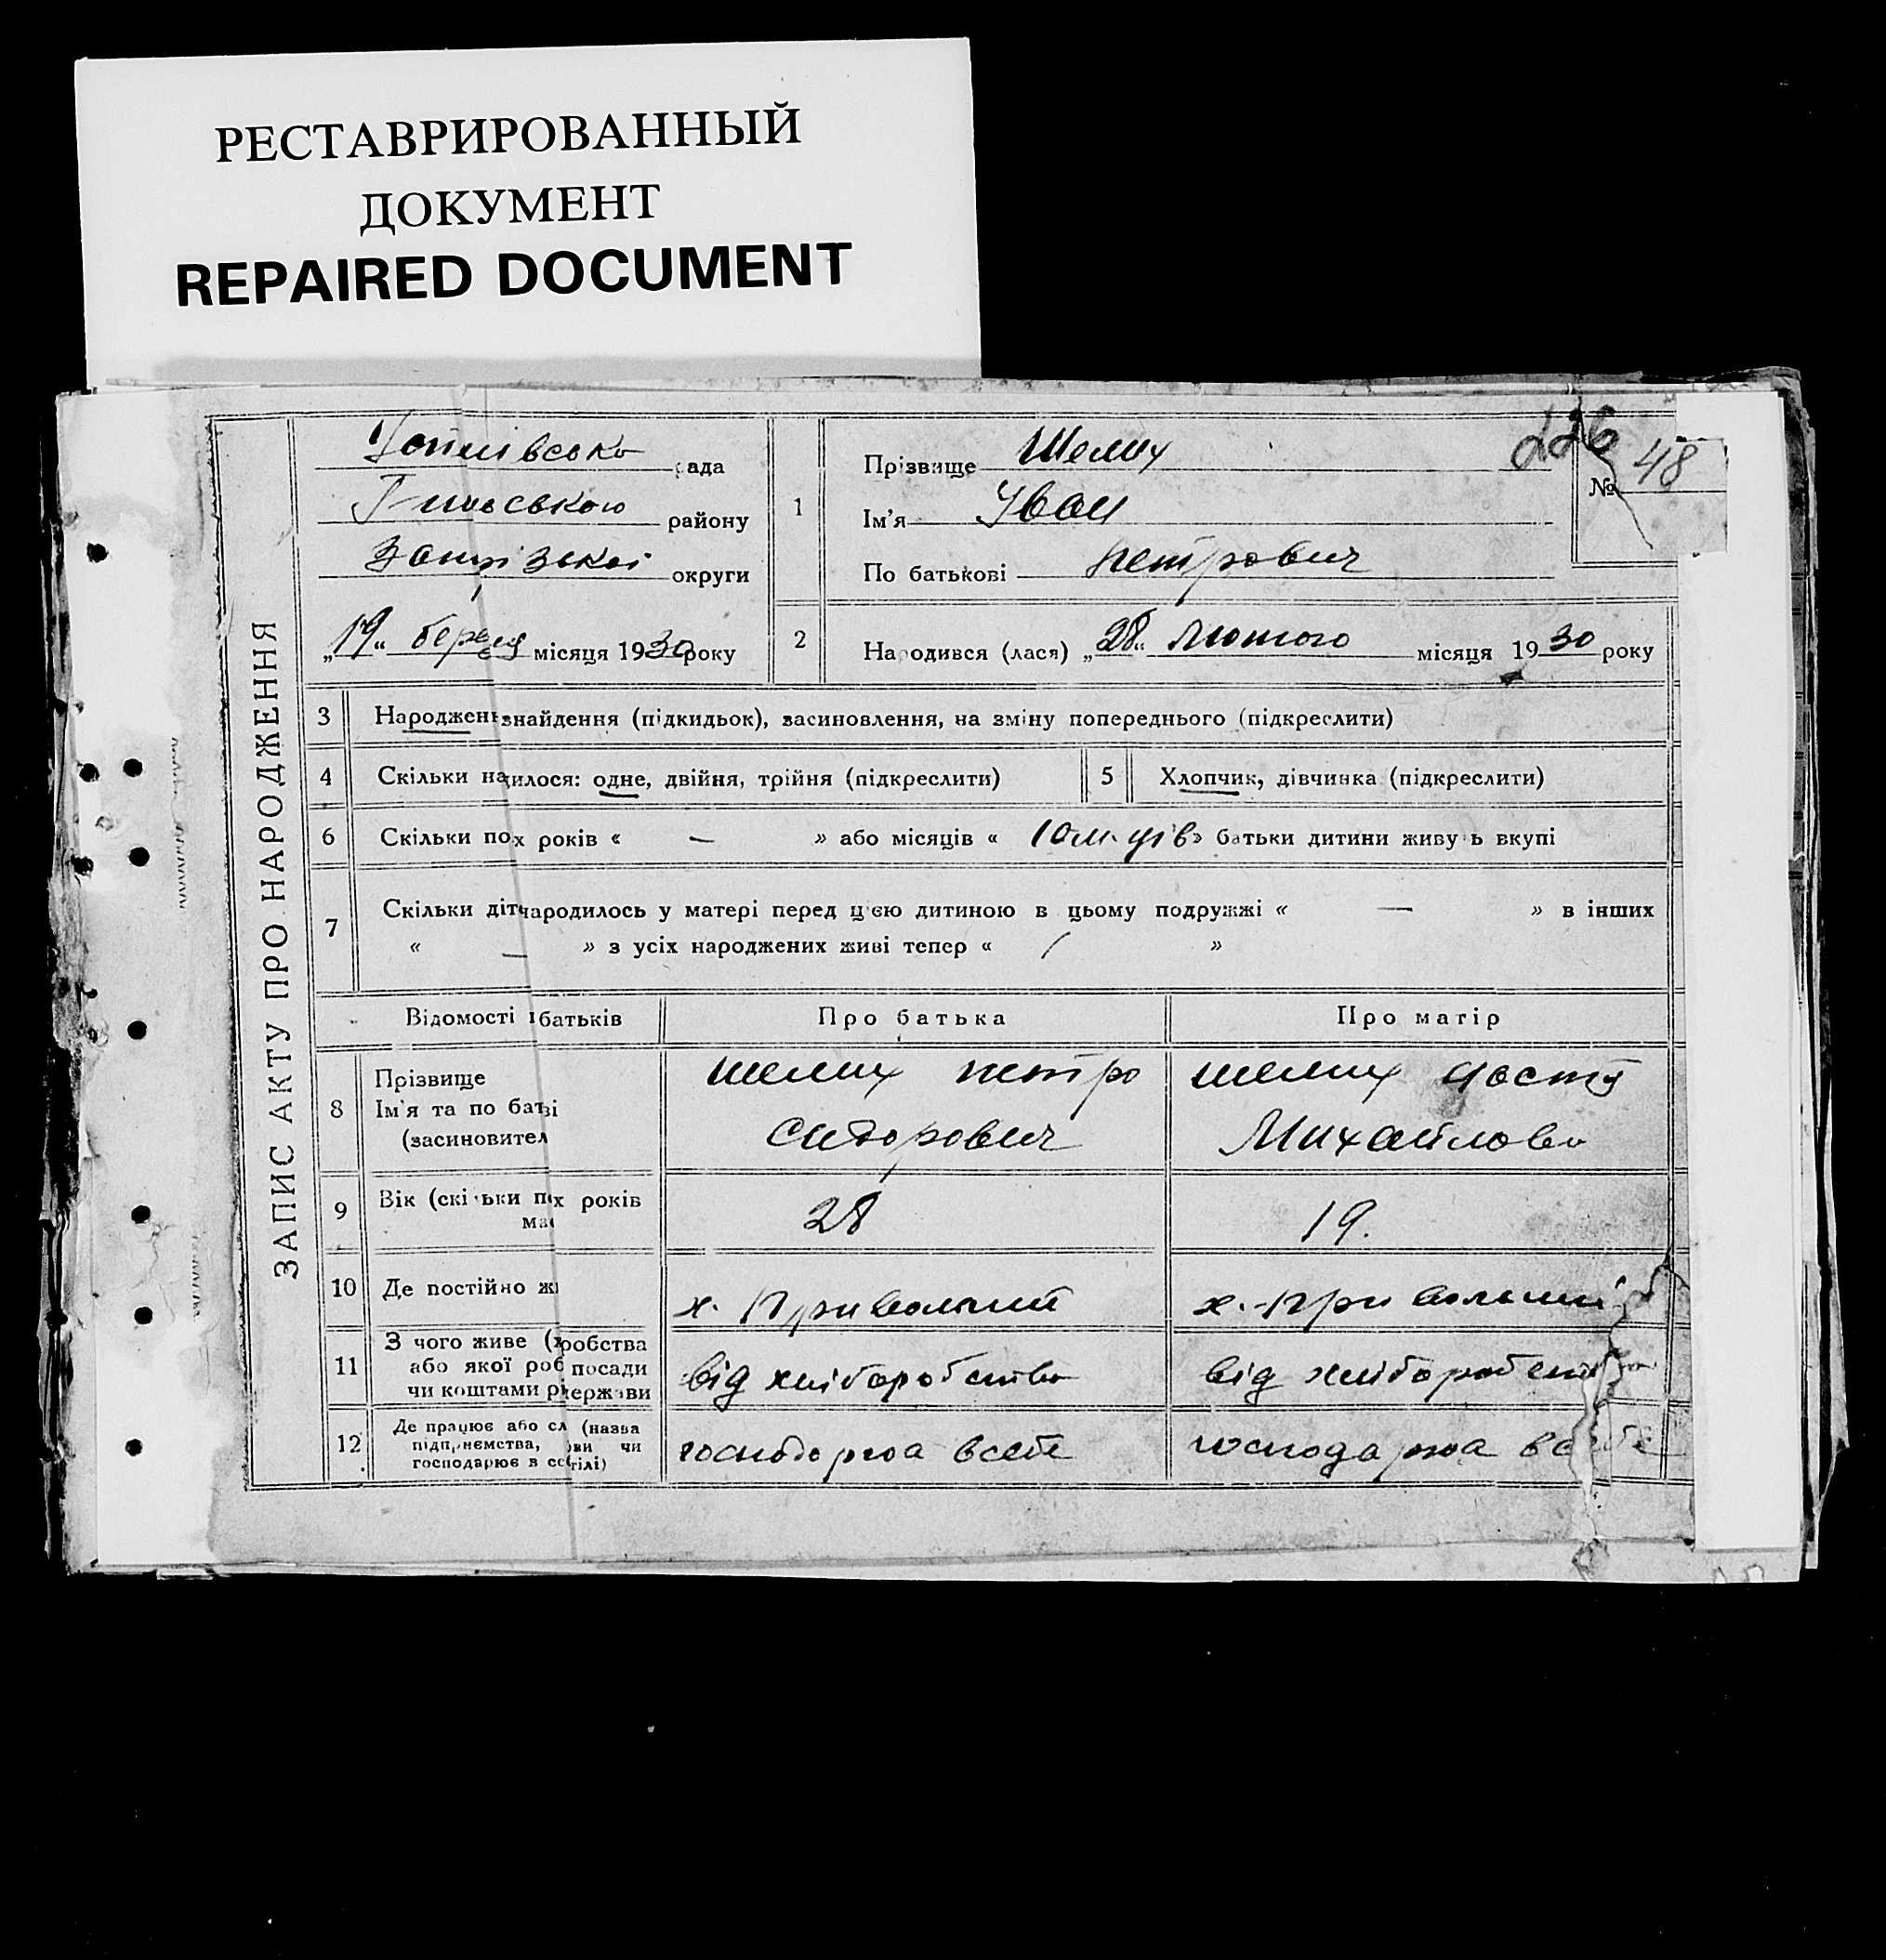 РЕСТАВРИРОВАННЫЙ
ДОКУМЕНТ
REPAIRED DOCUMENT
ЗАПИС АКТУ ПРО НАРОДЖЕННЯ
ада
району
округи
„19“ березня місяця 1930 року
226
№ 48
1
Прізвище Шелих
Ім'я Іван
По батькові Петрович
2
Народився (лася) „28“ Лютого місяця 1930 року
3 Народжен знайдення (підкидьок), засиновлення, на зміну попереднього (підкреслити)
4 Скільки на илося: одне, двійня, трійня (підкреслити)
5 Хлопчик, дівчинка (підкреслити)
6 Скільки по х років « — » або місяців « 10 м-ців » батьки дитини живу ь вкупі
7 Скільки діт народилось у матері перед цією дитиною в цьому подружжі « — » в інших
« — » з усіх народжених живі тепер « / »
Відомості батьків
Про батька
Про матір
8 Прізвище
Ім'я та по бат ві
(засиновител
Шелих Петро
Сидорович
Шелих
Михайлова
9 Вік (скільки п х років
має
28
19.
10 Де постійно жи
х. Привольний
х. Привольний
11 З чого живе (х робства
або якої роб посади
чи коштами р держави
від хліборобства
від хліборобства
12 Де працює або сл (назва
підприємства, ви чи
господарює в се ілі)
господарюа всебе
господарюа всебе